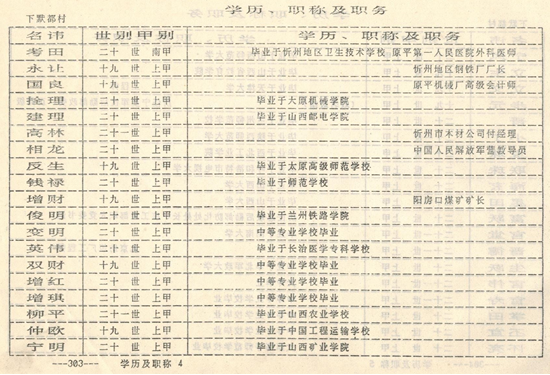 学历、职称及职务
下默都村
名讳 世别甲别 学历、职称及职务
考田 二十世 南甲 毕业于忻州地区卫生技术学校 原平第一人民医院外科医师
永让 十九世 上甲 忻州地区钢铁厂厂长
国良 十九世 上甲 原平机械厂高级会计师
拴理 二十世 上甲 毕业于太原机械学院
建理 二十世 上甲 毕业于山西邮电学院
高林 二十世 上甲 忻州市木材公司付经理
相龙 二十世 上甲 中国人民解放军营教导员
反生 十九世 上甲 毕业于太原高级师范学校
钱禄 二十世 上甲 毕业于师范学校
增财 十九世 上甲 阳房口煤矿矿长
俊明 二十世 上甲 毕业于兰州铁路学院
变明 二十世 上甲 中等专业学校毕业
英伟 二十世 上甲 毕业于长治医学专科学校
双财 十九世 上甲 中等专业学校毕业
增红 二十世 上甲 中等专业学校毕业
增琪 二十世 上甲 中等专业学校毕业
柳平 二十世 上甲 毕业于山西农业学校
仲欧 十九世 上甲 毕业于中国工程运输学校
宁明 二十世 上甲 毕业于山西矿业学院
---303--- 学历及职称 4